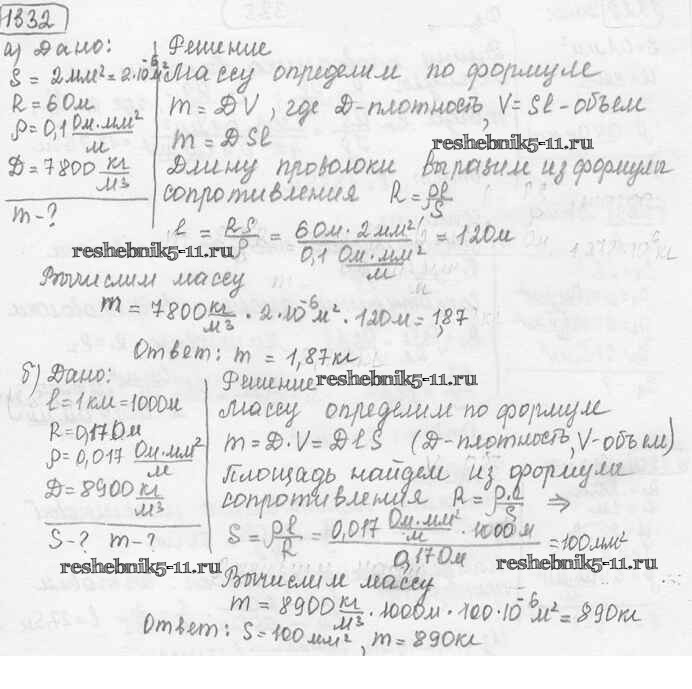 1332
а) Дано:
S = 2мм² = 2·10⁻⁶м²
R = 6Ом
ρ = 0,1 Ом·мм²/м
D = 7800 кг/м3
m-?
Решение
Массу определим по формуле
m = DV, где D-плотность, V = Sl - объем
m = DSl
reshebnik5-11.ru
Длину проволоки выразим из формулы
сопротивления R = ρl/S
l = RS/ρ = 6Ом · 2мм²/0,1 Ом·мм²/м = 120м
reshebnik5-11.ru
Вычислим массу
m = 7800 кг/м3 · 2·10⁻⁶м² · 120м = 1,87
Ответ: m = 1,87кг
reshebnik5-11.ru
б) Дано:
l = 1км = 1000м
R = 0,17Ом
ρ = 0,017 Ом·мм²/м
D = 8900 кг/м3
S-? m-?
reshebnik5-11.ru
Решение
Массу определим по формуле
m = D·V = DlS (D-плотность, V-объем)
Площадь найдем из формулы
сопротивления R = ρ·l/S ⇒
S = ρl/R = 0,017 Ом·мм²/м · 1000м/0,17Ом = 100мм²
reshebnik5-11.ru
Вычислим массу
m = 8900 кг/м3 · 1000м · 100·10⁻⁶м² = 890кг
Ответ: S = 100мм², m = 890кг